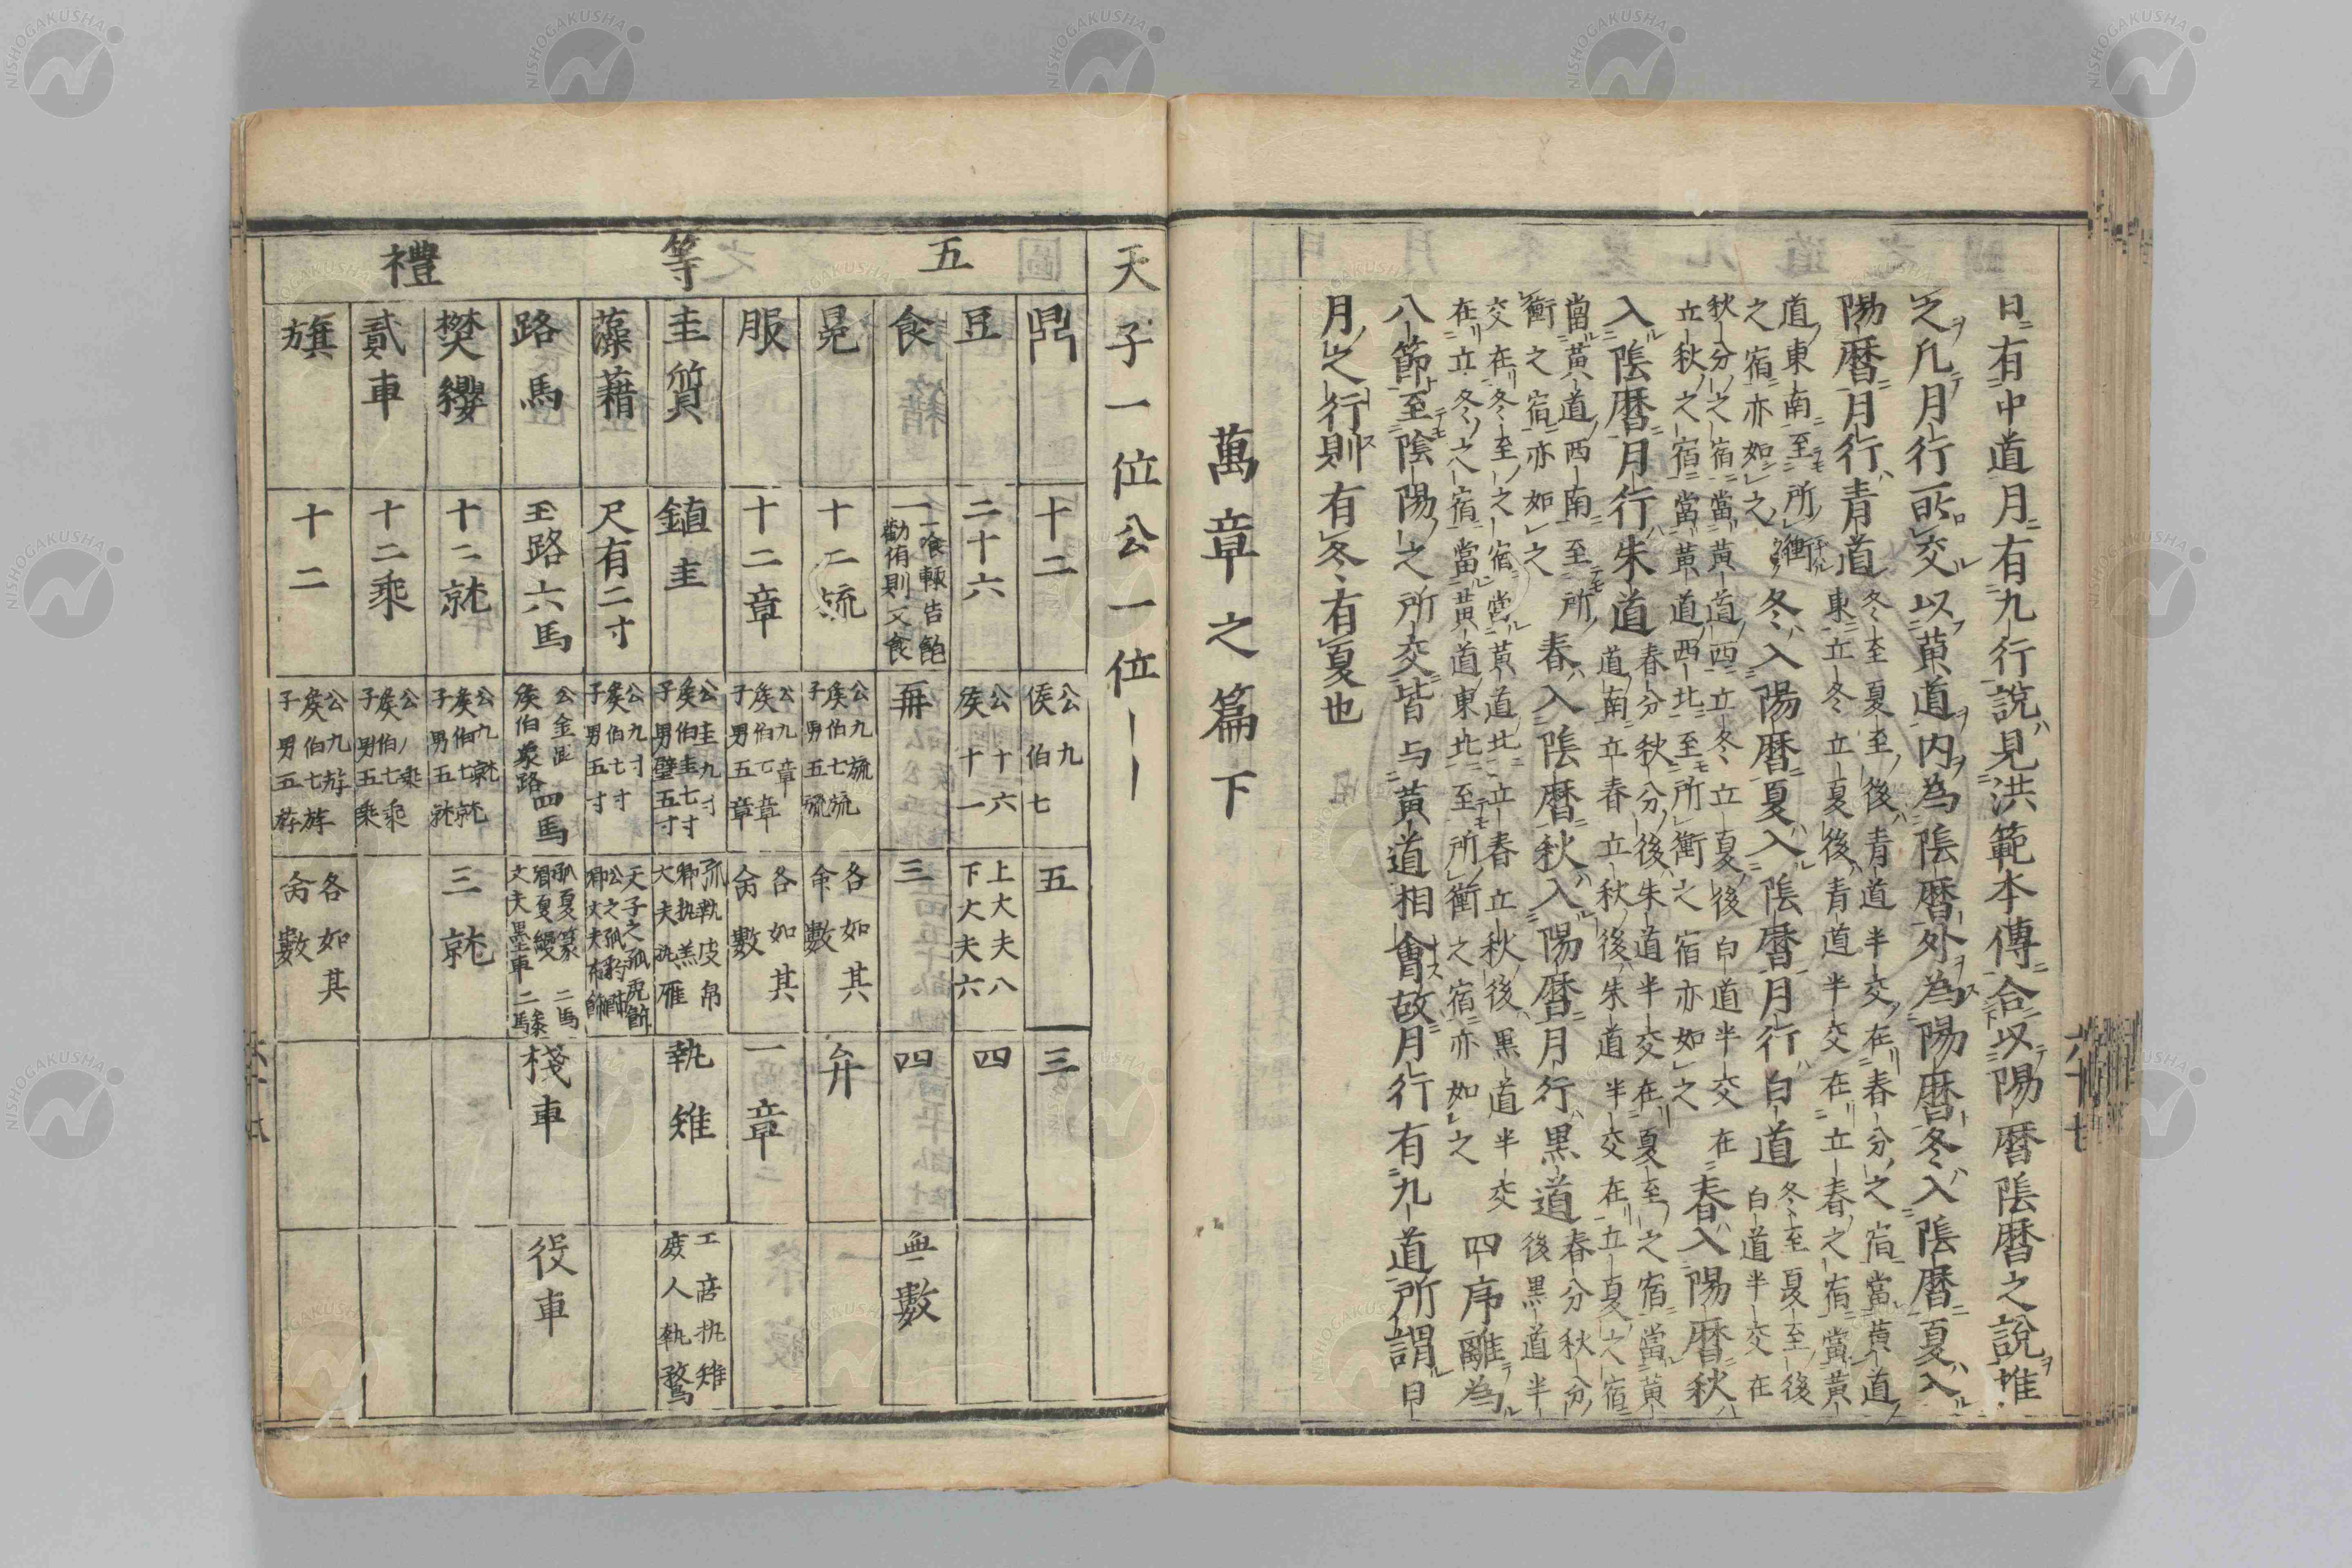 日有中道月有九行說見洪範本傳合以陽曆陰曆之說推
之凡月行所交以黃道內為陰曆外為陽曆冬入陰曆夏入
陽曆月行青道冬至夏至後青道半交在春分之宿當黃道
東立冬立夏後青道半交在立春之宿當黃
道東南至所衝
之宿亦如之冬入陽曆夏入陰曆月行白道冬至夏至後
白道半交在
秋分之宿當黃道西立冬立夏後白道半交在
立秋之宿當黃道西北至所衝之宿亦如之春入陽曆秋
入陰曆月行朱道春分秋分後朱道半交在夏至之宿當黃
道南立春立秋後朱道半交在立夏之宿
當黃道西南至所
衝之宿亦如之春入陰曆秋入陽曆月行黑道春分秋分
後黑道半
交在冬至之宿當黃道北立春立秋後黑道半交
在立冬之宿當黃道東北至所衝之宿亦如之四序離為
八節至陰陽之所交皆与黃道相會故月行有九道所謂日
月之行則有冬有夏也
萬章之篇下
天子一位公一位
五等禮
鼎 十二 公九侯伯七 五 三
豆 二十六 公十六侯十一 上大夫八下大夫六 四
食 一一飧輒告飽勸侑則又食 再 三 四 無數
冕 十二旒 公九旒侯伯七旒子男五旒 各如其命數 弁
服 十二章 公九章侯伯七章子男五章 各如其命數 一章
圭質 鎮圭 公圭九寸侯伯圭七寸子男璧五寸 孤執皮帛卿執羔大夫執雁 執雉 工商執雉庶人執鶩
藻藉 尺有二寸 公九寸侯伯七寸子男五寸 天子之孤虎飾公之孤豹飾卿大夫布飾
路馬 玉路六馬 公金路侯伯象路四馬 孤夏篆卿夏縵大夫墨車 棧車 役車
樊纓 十二就 公九就侯伯七就子男五就 三就
貳車 十二乘 公九乘侯伯七乘子男五乘
旗 十二 公九斿侯伯七斿子男五斿 各如其命數